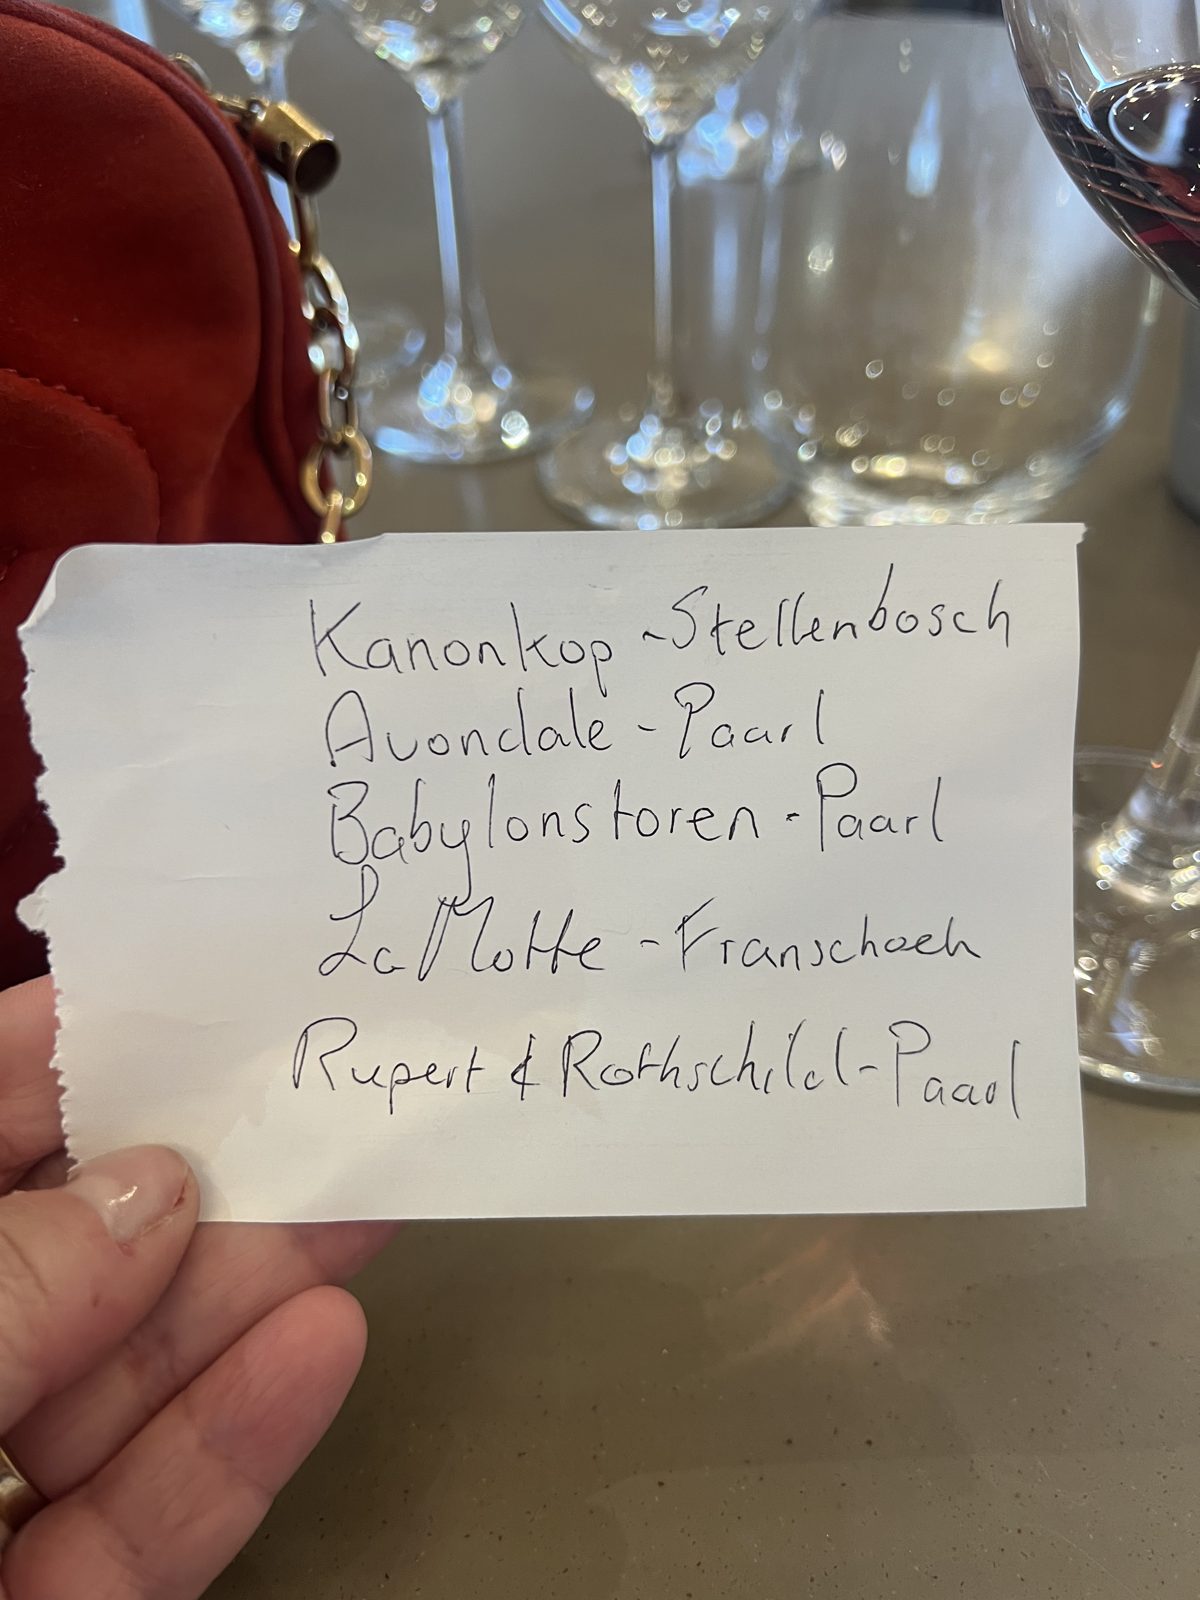 Kanonkop - Stellenbosch
Avondale - Paarl
Babylonstoren - Paarl
La Motte - Franschoek
Rupert & Rothschild - Paarl